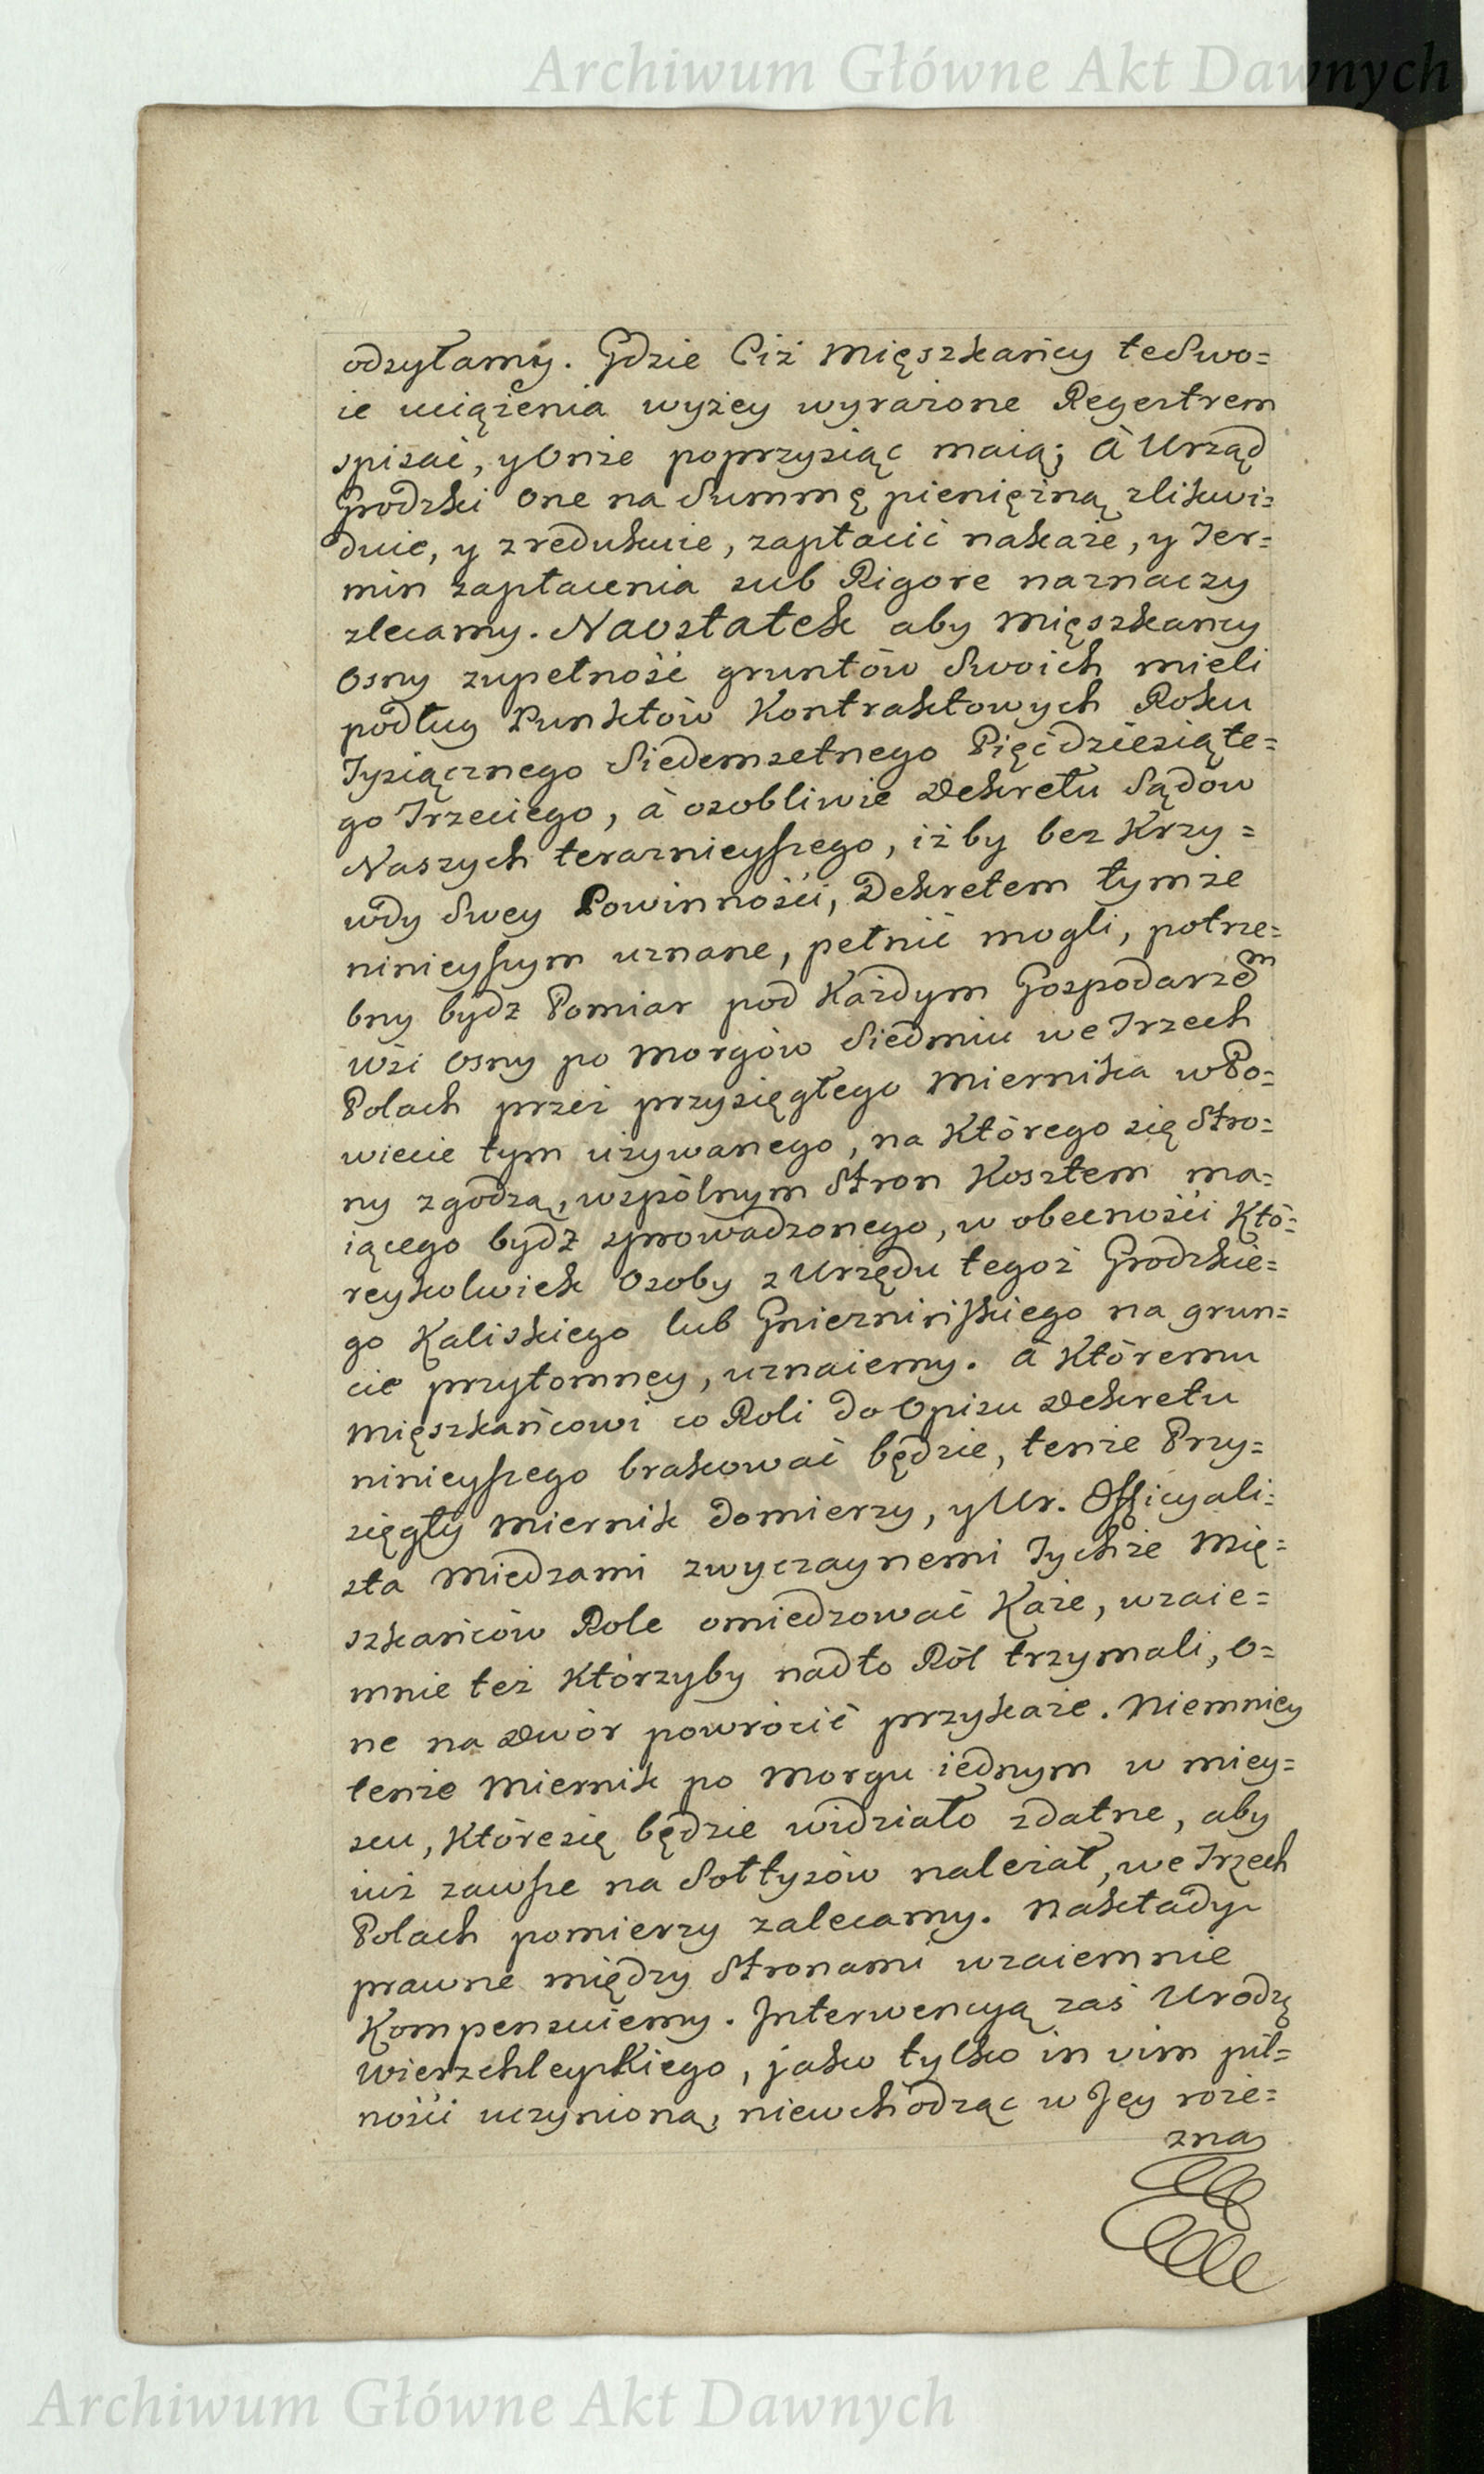 Archiwum Główne Akt Dawnych
odzyłamy. Gdzie Ciż Mięszkańcy te Swo=
ie uciążenia wyżey wyrażone Regestrem
spisać, y Onże poprzysiąc maią; à Urząd
Grodzki One na Summę pieniężną zlikwi=
duie, y zredukuie, zapłacić nakaże, y Ter=
min zapłacenia sub Rigore naznaczy
zlecamy. Naostatek aby Mięszkancy
Osny zupełność gruntów Swoich mieli
podług Punktów Kontraktowych Roku
Tysiącznego Siedemsetnego Pięćdziesiąte=
go Trzeciego, à osobliwie Dekretu Sądów
Naszych teraznieyszego, iżby bez Krzy=
wdy Swey Powinności, Dekretem tymże
ninieyszym uznane, pełnić mogli, potrze=
bny bydz Pomiar pod Każdym Gospodarzem
Wsi Osny po Morgów Siedmiu we Trzech
Polach przez przysięgłego Miernika w Po=
wiecie tym używanego, na Którego się Stro=
ny zgodzą, wspólnym Stron Kosztem ma=
iącego bydź sprowadzonego, w obecności Któ=
reykolwiek Osoby z Urzędu tegoż Grodzkie=
go Kaliskiego lub Gnieznińskiego na grun=
cie przytomney, uznaiemy. à Któremu
Mięszkańcowi co Roli do Opisu Dekretu
ninieyszego brakować będzie, tenże Przy=
sięgły Miernik domierzy, y Ur. Officyali=
sta Miedzami zwyczaynemi Tychże Mię=
szkańców Role omiedzować Każe, wzaie=
mnie też Którzyby nadto Ról trzymali, O=
ne na Dwór powrócić przykaże. Niemniey
tenże Miernik po Morgu iednym w miey=
scu, Które się będzie widziało zdatne, aby
iuż zawsze na Sołtysów należał, we Trzech
Polach pomierzy zalecamy. Nakłady
prawne między Stronami wzaiemnie
Kompensuiemy. Interwencyą zaś Urodz
Wierzchleyskiego, jako tylko in vim pil=
ności uczynioną, niewchodząc w Jey roze=
zna
Archiwum Główne Akt Dawnych